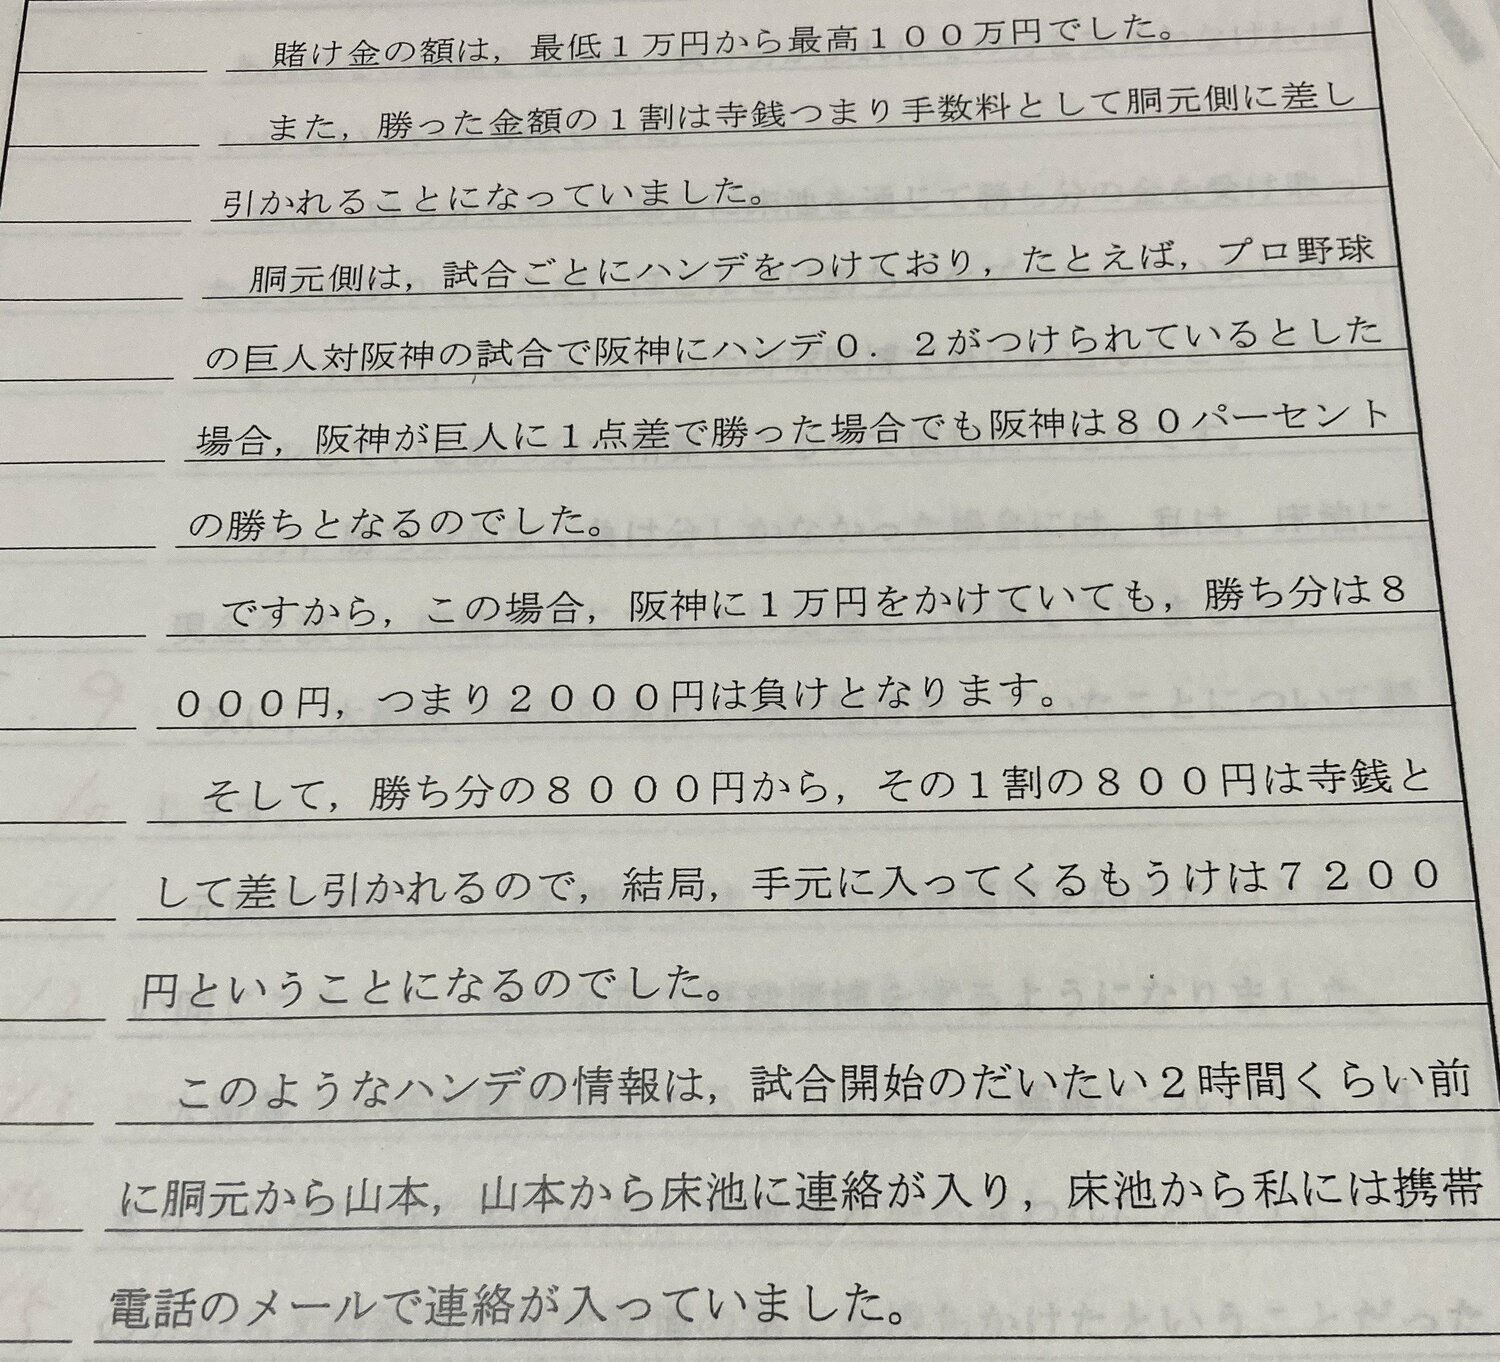 賭け金の額は，最低１万円から最高１００万円でした。
また，勝った金額の１割は寺銭つまり手数料として胴元側に差し
引かれることになっていました。
胴元側は，試合ごとにハンデをつけており，たとえば，プロ野球
の巨人対阪神の試合で阪神にハンデ０．２がつけられているとした
場合，阪神が巨人に１点差で勝った場合でも阪神は８０パーセント
の勝ちとなるのでした。
ですから，この場合，阪神に１万円をかけていても，勝ち分は８
０００円，つまり２０００円は負けとなります。
そして，勝ち分の８０００円から，その１割の８００円は寺銭と
して差し引かれるので，結局，手元に入ってくるもうけは７２００
円ということになるのでした。
このようなハンデの情報は，試合開始のだいたい２時間くらい前
に胴元から山本，山本から床池に連絡が入り，床池から私には携帯
電話のメールで連絡が入っていました。